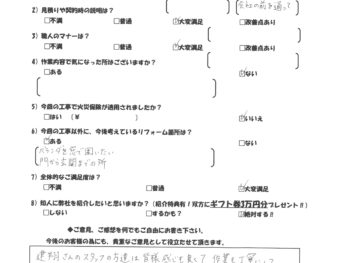 会社の前を通って
2) 見積りや契約時の説明は？
□不満 □普通 ☑大変満足 □改善点あり
3) 職人のマナーは？
□不満 □普通 ☑大変満足 □改善点あり
4) 作業内容で気になった所はございますか？
□ある ☑ない
5) 今回の工事で火災保険が適用されましたか？
□はい (¥ ) ☑いいえ
6) 今回の工事以外に、今後考えているリフォーム箇所は？
☑ある □ない
ベランダを窓で囲いたい
門から玄関までの所
7) 全体的なご満足度は？
□不満 □普通 ☑大変満足
8) 知人に弊社を紹介したいと思いますか？ (紹介特典有！双方にギフト券3万円分プレゼント!!)
□しない □するかも？ ☑絶対する！！
◆ご意見、ご感想を何でもご自由にお書き下さい。
今後のお客様の為にも、貴重なご意見として役立たせて頂きます。
さんのスタッフの方達は皆様感じも良くて 作業も丁寧にして